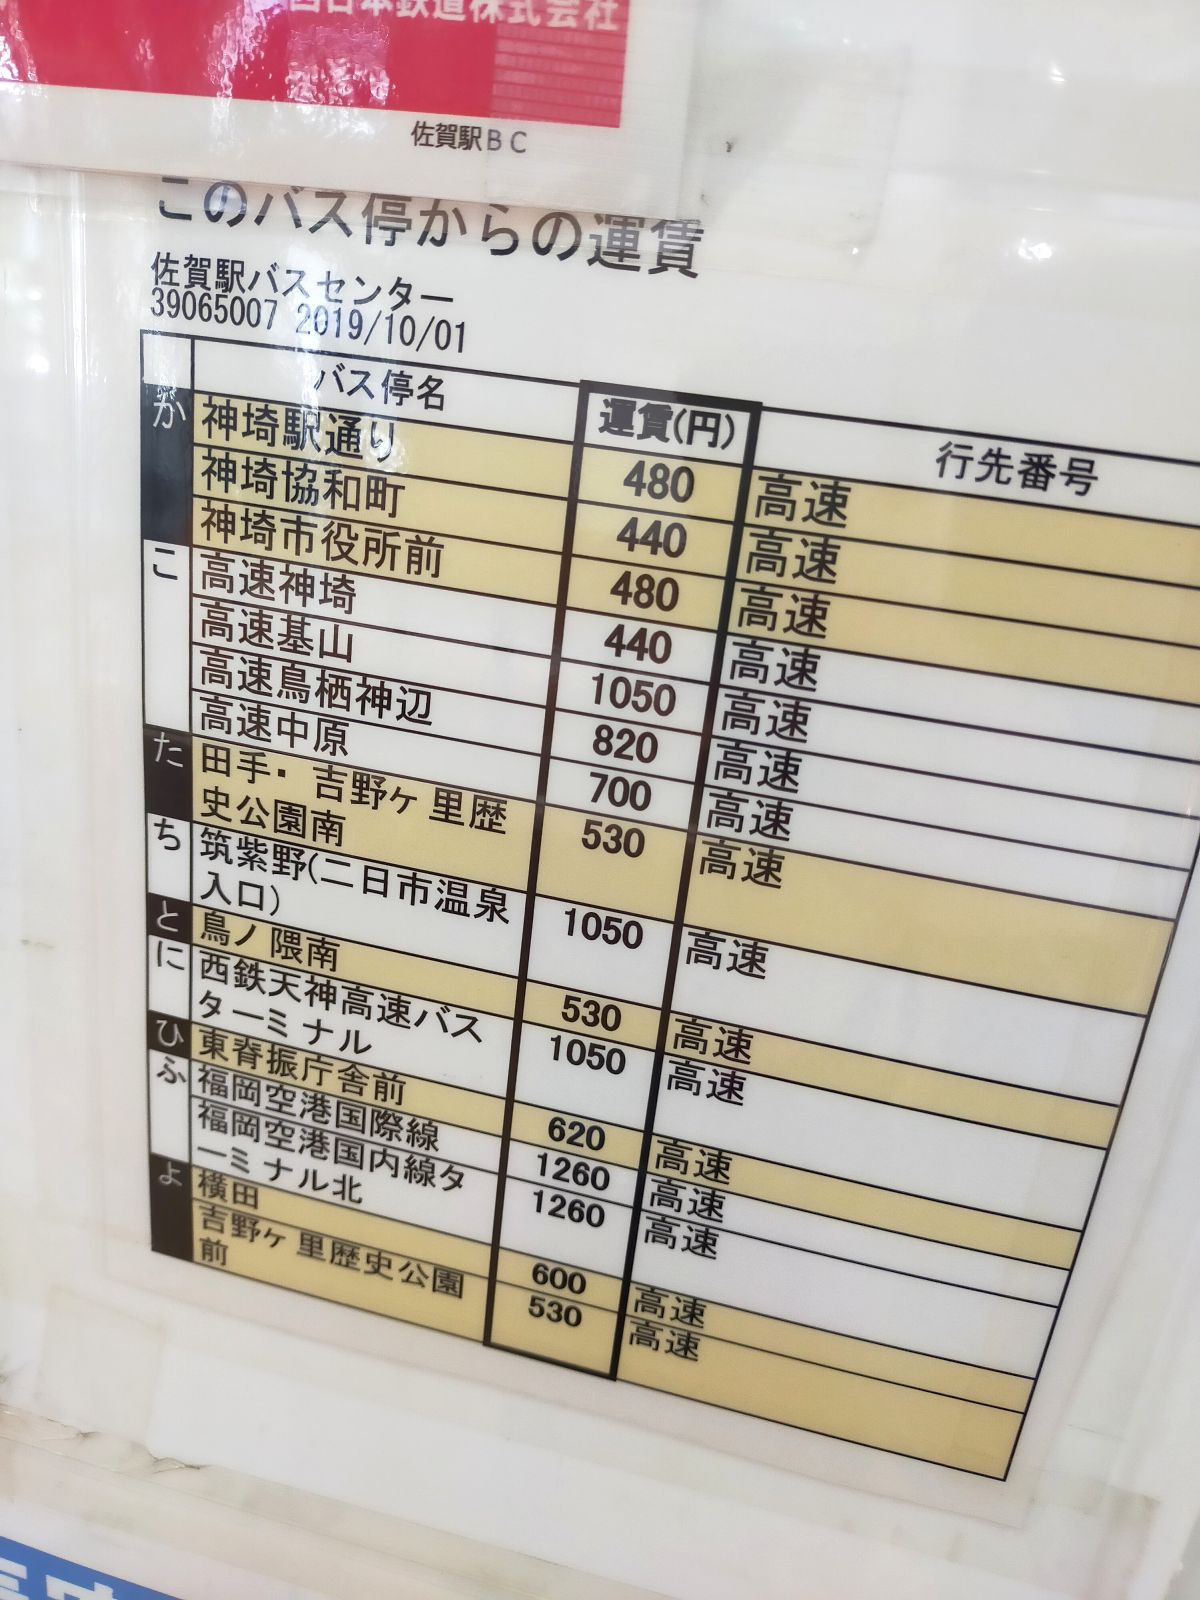 西日本鉄道株式会社
佐賀駅BC
このバス停からの運賃
佐賀駅バスセンター
39065007 2019/10/01
バス停名 運賃(円) 行先番号
か 神埼駅通り 480 高速
神埼協和町 440 高速
神埼市役所前 480 高速
こ 高速神埼 440 高速
高速基山 1050 高速
高速鳥栖神辺 820 高速
高速中原 700 高速
た 田手・吉野ケ里歴 530 高速
史公園南
ち 筑紫野(二日市温泉 1050 高速
入口)
と 鳥ノ隈南 530 高速
に 西鉄天神高速バス 1050 高速
ターミナル
ひ 東脊振庁舎前 620 高速
ふ 福岡空港国際線 1260 高速
福岡空港国内線タ 1260 高速
ーミナル北
よ 横田 600 高速
吉野ケ里歴史公園 530 高速
前